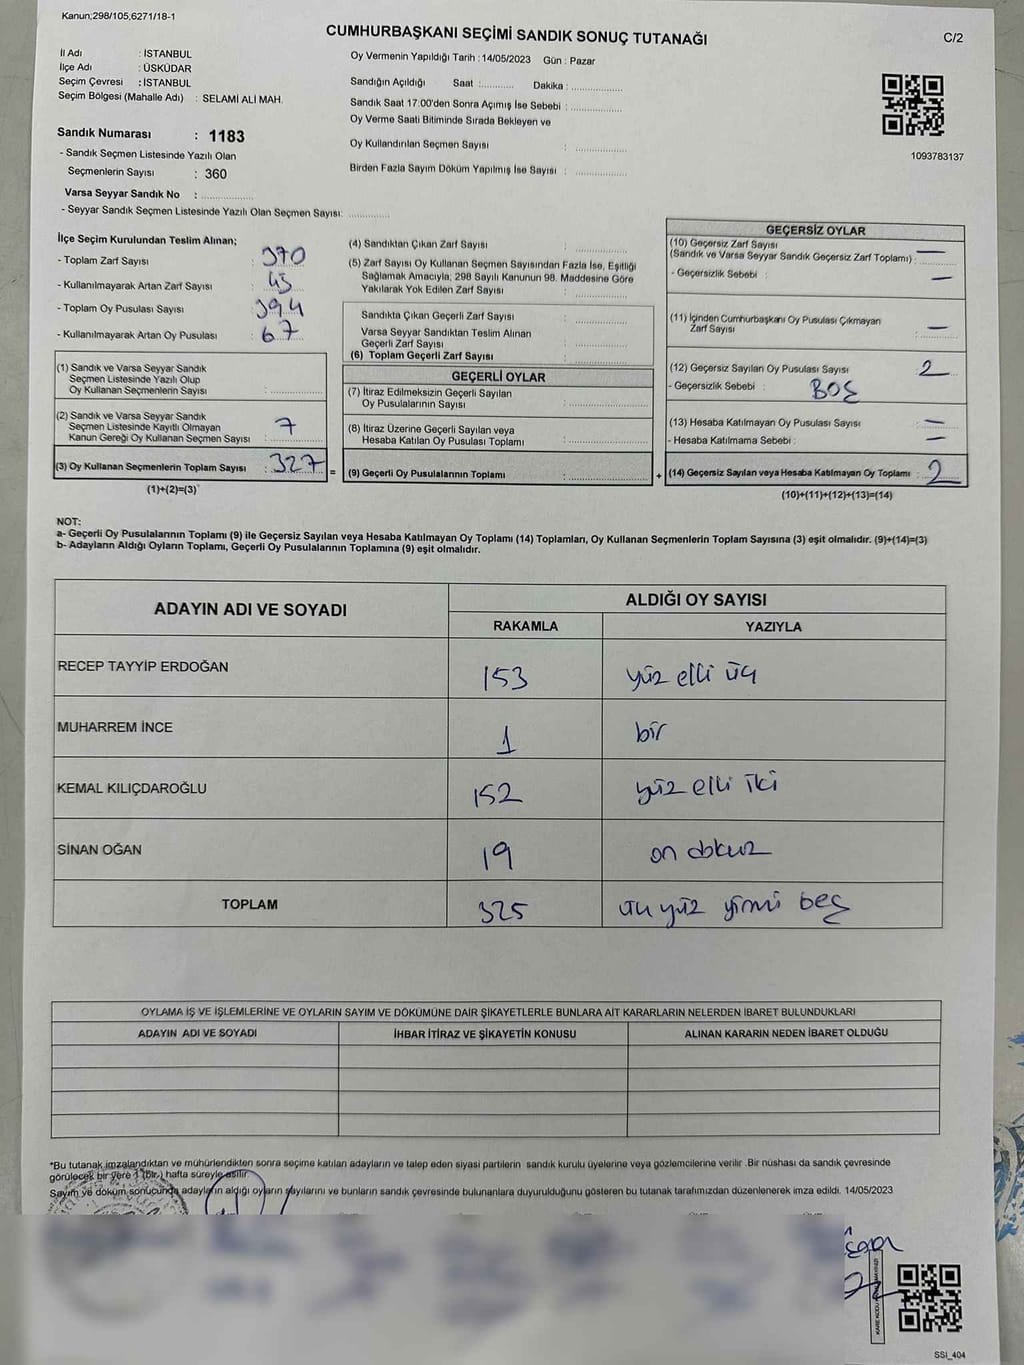 Kanun;298/105,6271/18-1
CUMHURBAŞKANI SEÇİMİ SANDIK SONUÇ TUTANAĞI
C/2
İl Adı : İSTANBUL
İlçe Adı : ÜSKÜDAR
Seçim Çevresi : İSTANBUL
Seçim Bölgesi (Mahalle Adı) : SELAMİ ALİ MAH.
Sandık Numarası : 1183
- Sandık Seçmen Listesinde Yazılı Olan
Seçmenlerin Sayısı : 360
Varsa Seyyar Sandık No :
- Seyyar Sandık Seçmen Listesinde Yazılı Olan Seçmen Sayısı:
Oy Vermenin Yapıldığı Tarih : 14/05/2023 Gün : Pazar
Sandığın Açıldığı Saat : Dakika :
Sandık Saat 17:00'den Sonra Açımış İse Sebebi :
Oy Verme Saati Bitiminde Sırada Bekleyen ve
Oy Kullandırılan Seçmen Sayısı :
Birden Fazla Sayım Döküm Yapılmış İse Sayısı :
1093783137
İlçe Seçim Kurulundan Teslim Alınan;
- Toplam Zarf Sayısı : 370
- Kullanılmayarak Artan Zarf Sayısı : 43
- Toplam Oy Pusulası Sayısı : 394
- Kullanılmayarak Artan Oy Pusulası : 67
(1) Sandık ve Varsa Seyyar Sandık
Seçmen Listesinde Yazılı Olup
Oy Kullanan Seçmenlerin Sayısı :
(2) Sandık ve Varsa Seyyar Sandık
Seçmen Listesinde Kayıtlı Olmayan
Kanun Gereği Oy Kullanan Seçmen Sayısı : 7
(3) Oy Kullanan Seçmenlerin Toplam Sayısı : 327 =
(1)+(2)=(3)
(4) Sandıktan Çıkan Zarf Sayısı :
(5) Zarf Sayısı Oy Kullanan Seçmen Sayısından Fazla İse, Eşitliği
Sağlamak Amacıyla, 298 Sayılı Kanunun 98. Maddesine Göre
Yakılarak Yok Edilen Zarf Sayısı :
Sandıkta Çıkan Geçerli Zarf Sayısı :
Varsa Seyyar Sandıktan Teslim Alınan
Geçerli Zarf Sayısı :
(6) Toplam Geçerli Zarf Sayısı :
GEÇERLİ OYLAR
(7) İtiraz Edilmeksizin Geçerli Sayılan
Oy Pusulalarının Sayısı :
(8) İtiraz Üzerine Geçerli Sayılan veya
Hesaba Katılan Oy Pusulası Toplamı :
(9) Geçerli Oy Pusulalarının Toplamı : +
GEÇERSİZ OYLAR
(10) Geçersiz Zarf Sayısı —
(Sandık ve Varsa Seyyar Sandık Geçersiz Zarf Toplamı) :
- Geçersizlik Sebebi : —
(11) İçinden Cumhurbaşkanı Oy Pusulası Çıkmayan
Zarf Sayısı : —
(12) Geçersiz Sayılan Oy Pusulası Sayısı : 2
- Geçersizlik Sebebi : BOŞ
(13) Hesaba Katılmayan Oy Pusulası Sayısı : —
- Hesaba Katılmama Sebebi : —
(14) Geçersiz Sayılan veya Hesaba Katılmayan Oy Toplamı : 2
(10)+(11)+(12)+(13)=(14)
NOT:
a- Geçerli Oy Pusulalarının Toplamı (9) ile Geçersiz Sayılan veya Hesaba Katılmayan Oy Toplamı (14) Toplamları, Oy Kullanan Seçmenlerin Toplam Sayısına (3) eşit olmalıdır. (9)+(14)=(3)
b- Adayların Aldığı Oyların Toplamı, Geçerli Oy Pusulalarının Toplamına (9) eşit olmalıdır.
ADAYIN ADI VE SOYADI ALDIĞI OY SAYISI
RAKAMLA YAZIYLA
RECEP TAYYİP ERDOĞAN 153 yüz elli üç
MUHARREM İNCE 1 bir
KEMAL KILIÇDAROĞLU 152 yüz elli iki
SİNAN OĞAN 19 on dokuz
TOPLAM 325 üç yüz yirmi beş
OYLAMA İŞ VE İŞLEMLERİNE VE OYLARIN SAYIM VE DÖKÜMÜNE DAİR ŞİKAYETLERLE BUNLARA AİT KARARLARIN NELERDEN İBARET BULUNDUKLARI
ADAYIN ADI VE SOYADI İHBAR İTİRAZ VE ŞİKAYETİN KONUSU ALINAN KARARIN NEDEN İBARET OLDUĞU
*Bu tutanak imzalandıktan ve mühürlendikten sonra seçime katılan adayların ve talep eden siyasi partilerin sandık kurulu üyelerine veya gözlemcilerine verilir .Bir nüshası da sandık çevresinde
görülecek bir yere 1 (bir) hafta süreyle asılır.
Sayım ve döküm sonucunda adayların aldığı oyların sayılarını ve bunların sandık çevresinde bulunanlara duyurulduğunu gösteren bu tutanak tarafımızdan düzenlenerek imza edildi. 14/05/2023
SSİ_404